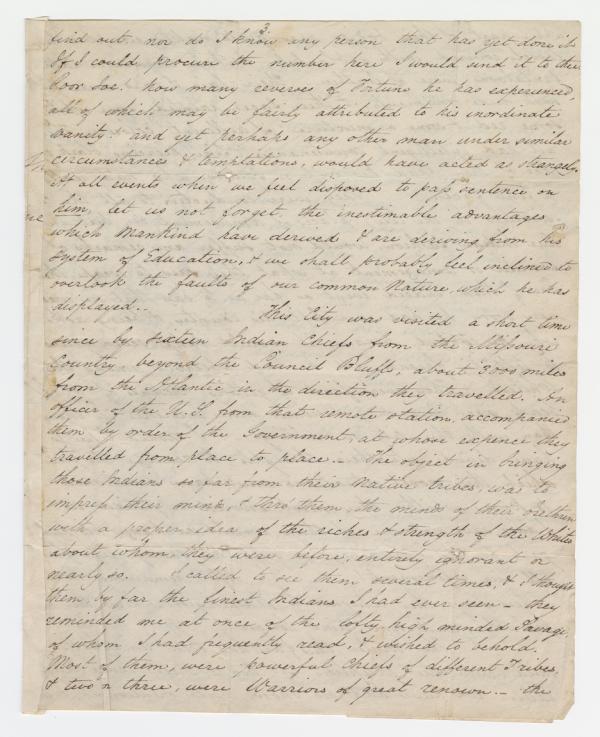 3
find out. nor do I know any person that has yet done it
If I could procure the number here I would send it to thee
Poor Joe. how many reverses of Fortune he has experienced,
all of which may be fairly attributed to his inordinate
vanity & and yet perhaps any other man under similar
circumstances & temptations, would have acted as strangely.
At all events when we feel disposed to pass sentence on
him, let us not forget. the inestimable advantages
which Mankind have derived & are deriving from his
System of Education, & we shall probably feel inclined to
overlook the faults of our common Nature, which he has
displayed.. This City was visited a short time
since by sixteen Indian Chiefs from the Missouri
Country, beyond the Council Bluffs, about 3000 miles
from the Atlantic in the direction they travelled. An
officer of the U.S. from that remote station, accompanied
them by order of the Government, at whose expence they
travelled from place to place.. The object in bringing
those Indians so far from their Native tribes, was to
impress their minds, & thro' them, the minds of their brethren
with a proper idea of the riches & strength of the Whites
about whom, they were before, entirely ignorant or
nearly so. I called to see them several times, & I thought
them by far the finest Indians I had ever seen - they
reminded me at once of the lofty high minded Savage,
of whom I had frequently read, & wished to behold.
Most of them, were powerful Chiefs of different Tribes
& two or three, were Warriors of great renown.- the